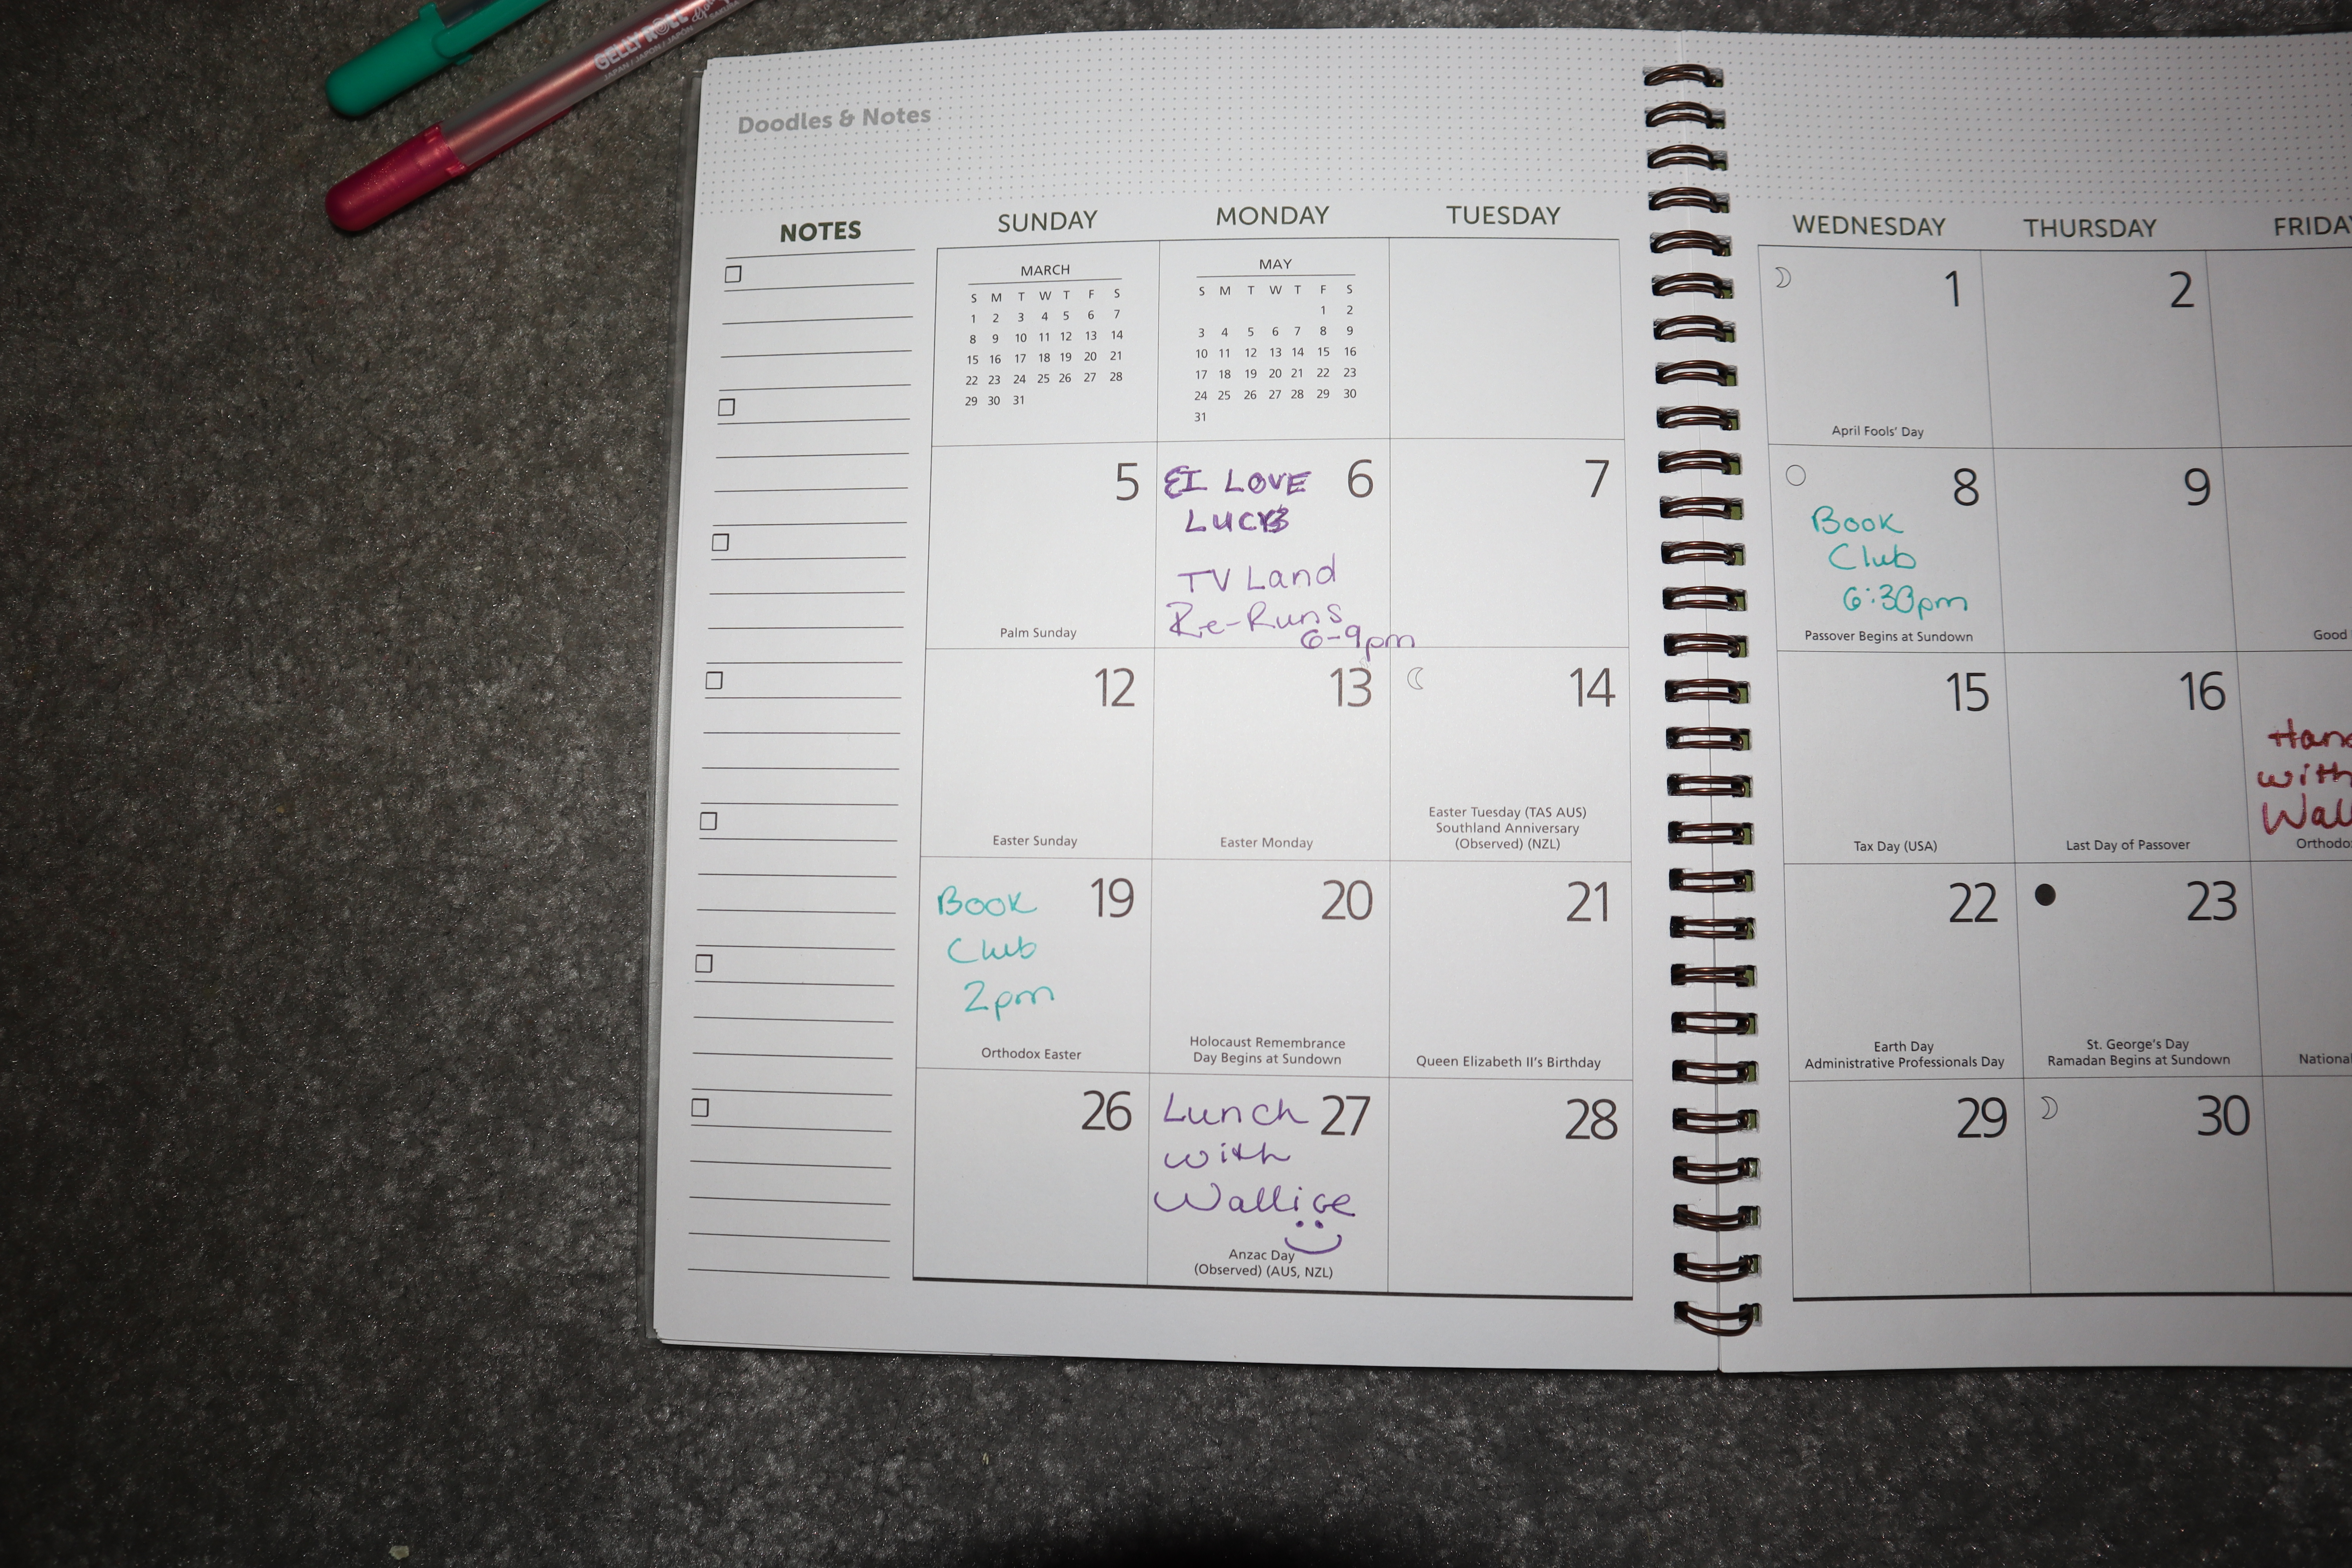 GELLY ROLL
JAPAN / JAPON / JAPÓN
Doodles & Notes
NOTES
SUNDAY MONDAY TUESDAY WEDNESDAY THURSDAY FRIDAY
MARCH
S M T W T F S
1 2 3 4 5 6 7
8 9 10 11 12 13 14
15 16 17 18 19 20 21
22 23 24 25 26 27 28
29 30 31
MAY
S M T W T F S
1 2
3 4 5 6 7 8 9
10 11 12 13 14 15 16
17 18 19 20 21 22 23
24 25 26 27 28 29 30
31
1
April Fools' Day
2
5
Palm Sunday
I LOVE 6
LUCY
TV Land
Re-Runs
6-9pm
7
8
Book
Club
6:30pm
Passover Begins at Sundown
9
Good
12
Easter Sunday
13
Easter Monday
14
Easter Tuesday (TAS AUS)
Southland Anniversary
(Observed) (NZL)
15
Tax Day (USA)
16
Last Day of Passover
with
Book 19
Club
2pm
Orthodox Easter
20
Holocaust Remembrance
Day Begins at Sundown
21
Queen Elizabeth II's Birthday
22
Earth Day
Administrative Professionals Day
23
St. George's Day
Ramadan Begins at Sundown
National
26
Lunch 27
with
Wallice
Anzac Day
(Observed) (AUS, NZL)
28
29
30